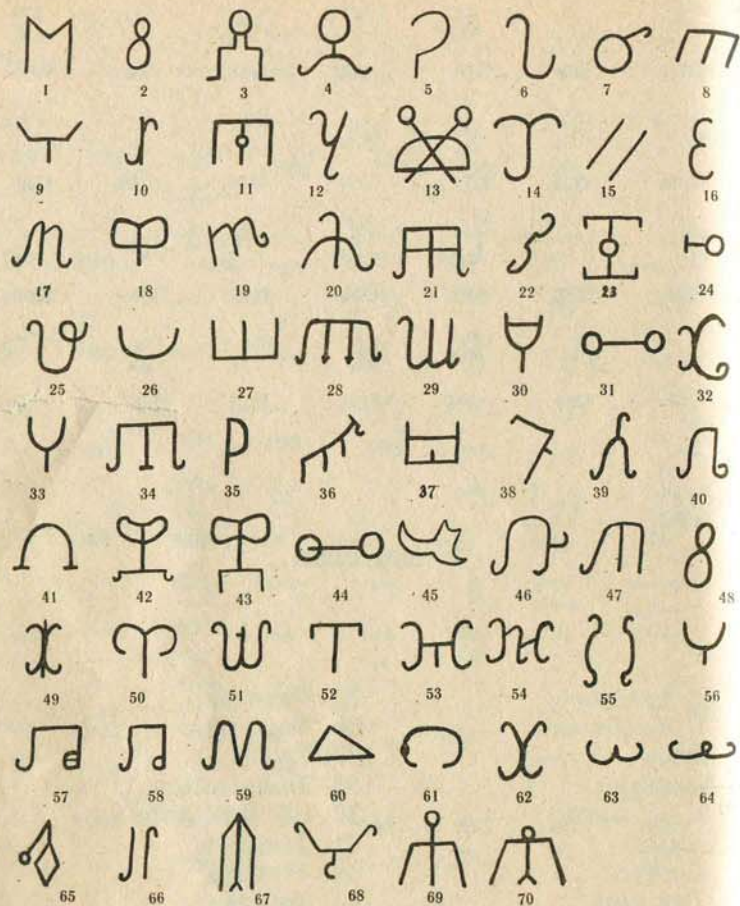 1 2 3 4 5 6 7 8
9 10 11 12 13 14 15 16
17 18 19 20 21 22 23 24
25 26 27 28 29 30 31 32
33 34 35 36 37 38 39 40
41 42 43 44 45 46 47 48
49 50 51 52 53 54 55 56
57 58 59 60 61 62 63 64
65 66 67 68 69 70